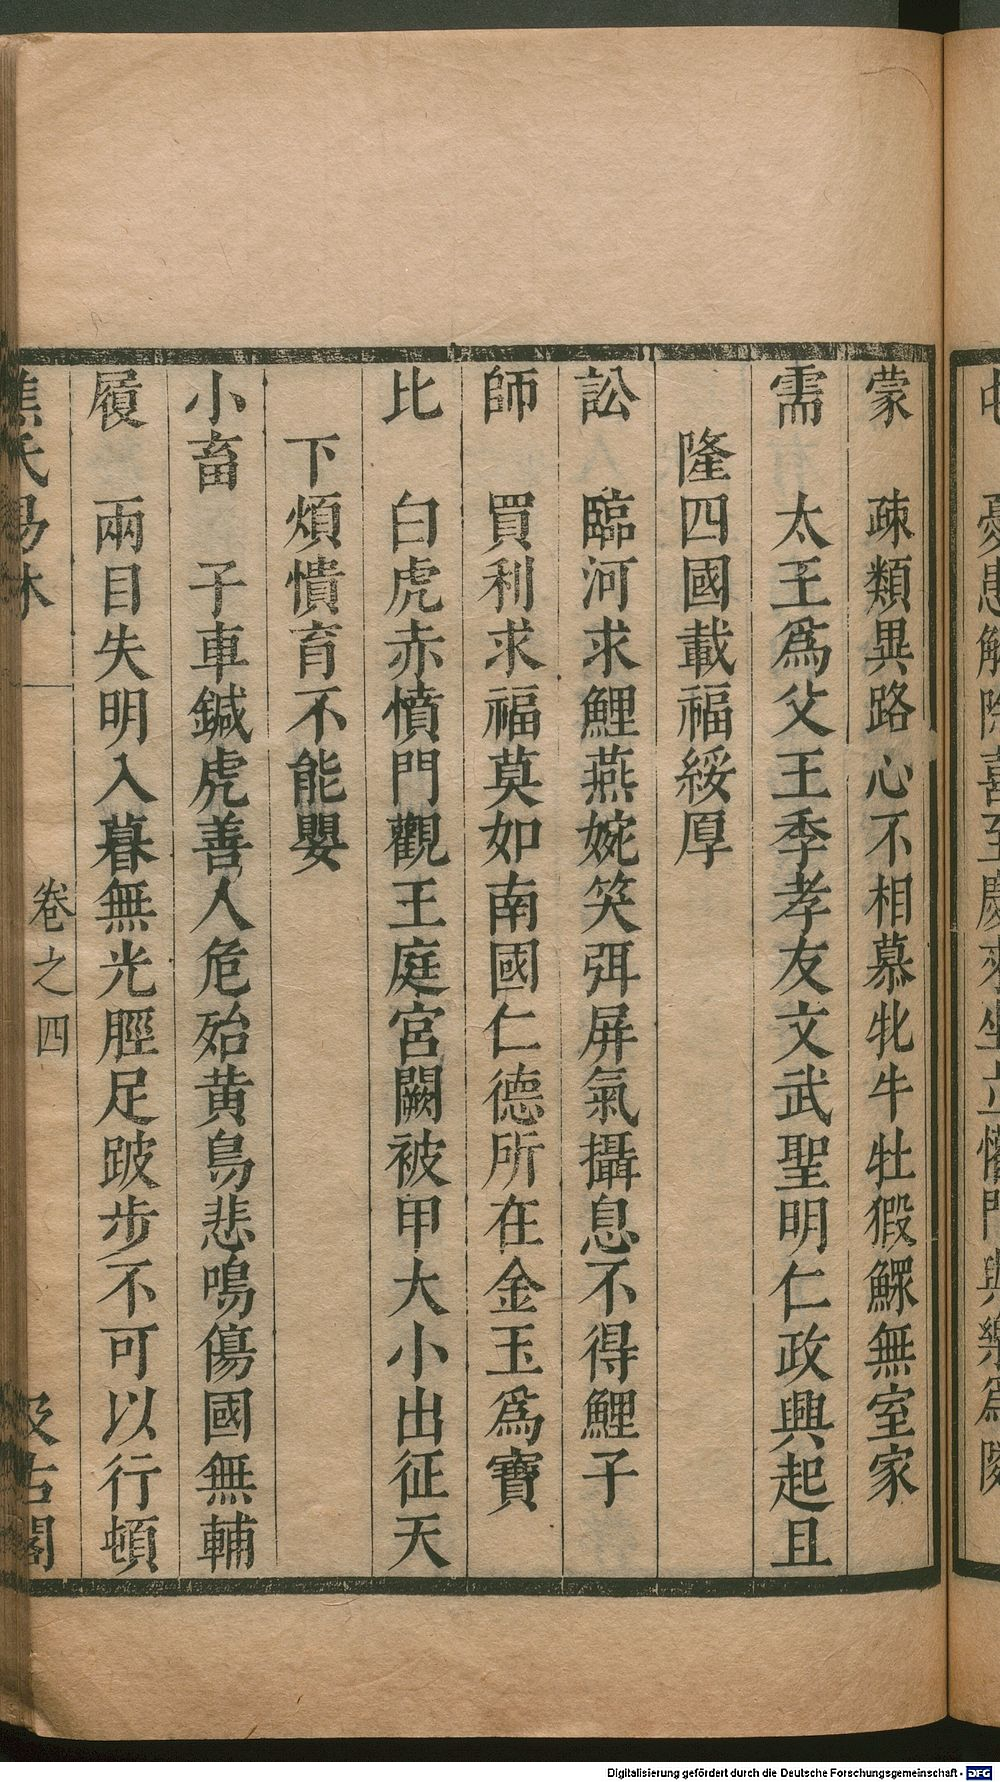 蒙　疎類異路心不相慕牝牛牡猳鰥無室家
需　太王爲父王季孝友文武聖明仁政興起且
隆四國載福綏厚
訟　臨河求鯉燕婉笑弭屏氣攝息不得鯉子
師　買利求福莫如南國仁德所在金玉爲寶
比　白虎赤憤門觀王庭宮闕被甲大小出征天
下煩憒育不能嬰
小畜　子車鍼虎善人危殆黄鳥悲鳴傷國無輔
履　兩目失明入暮無光脛足跛步不可以行頓
焦氏易林
卷之四
汲古閣
憂患解除喜至慶來坐立懽門與樂爲隣
Digitalisierung gefördert durch die Deutsche Forschungsgemeinschaft - DFG